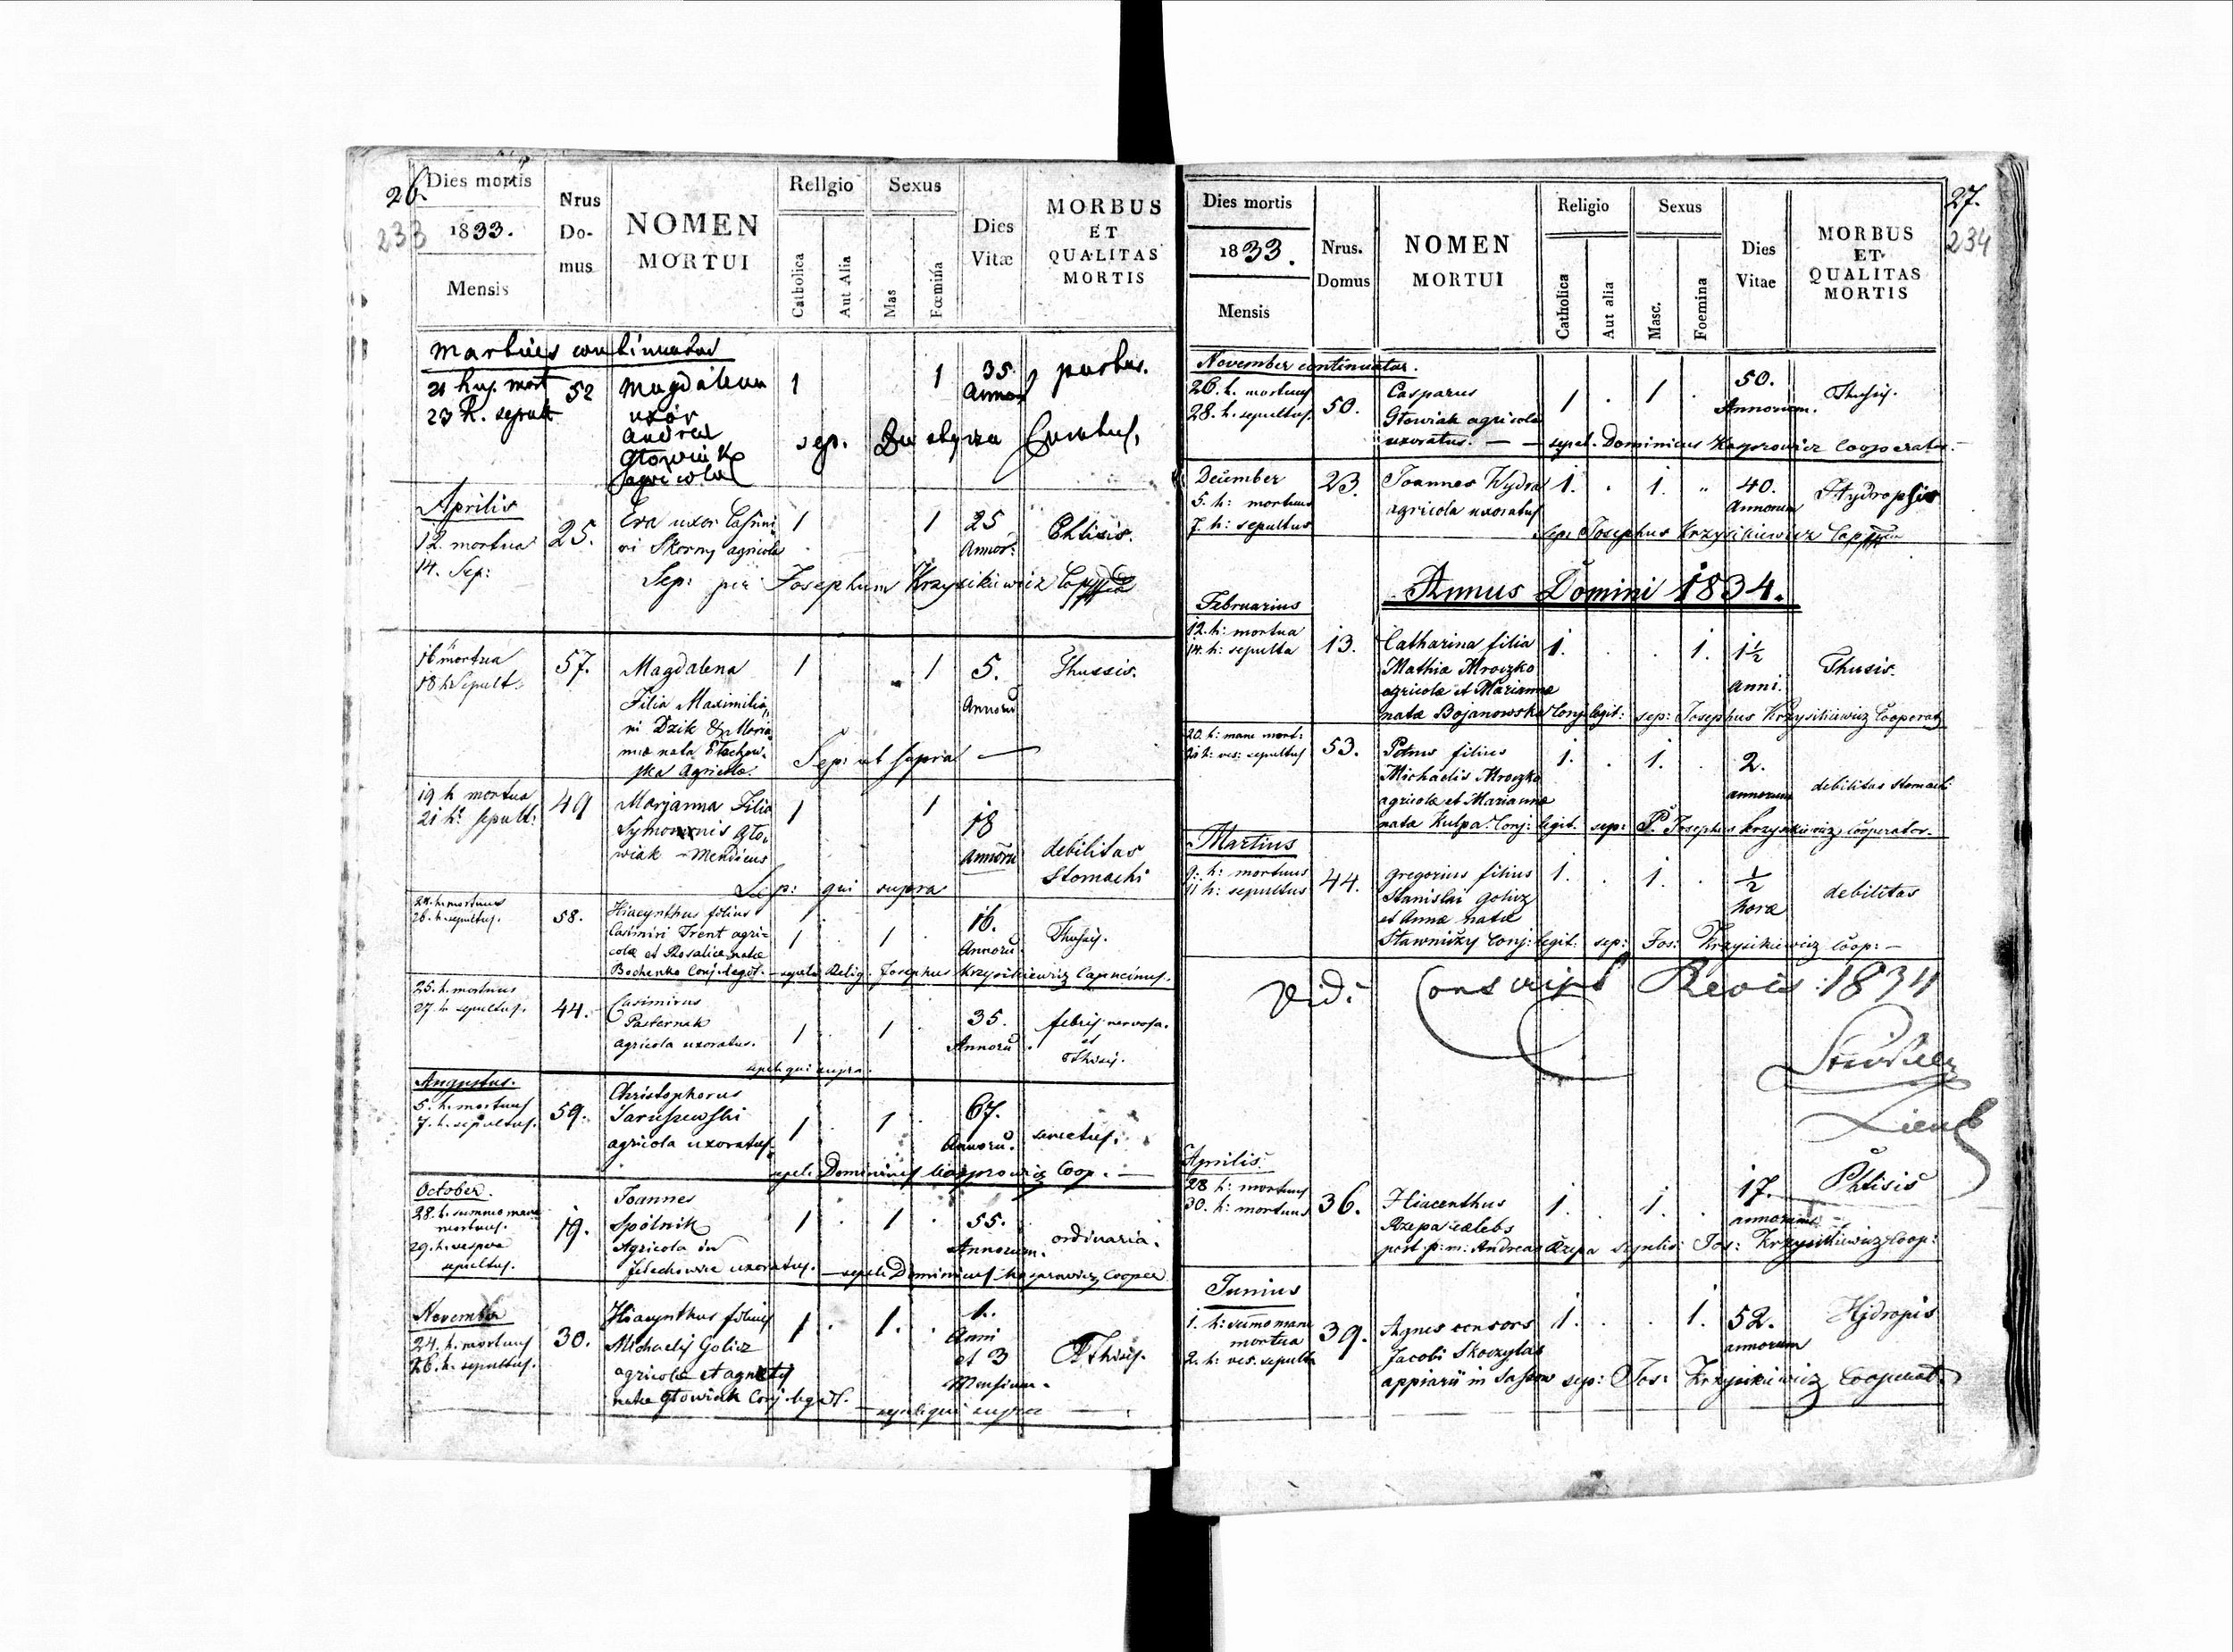 26.
233
Dies mortis
1833.
Mensis
Nrus
Do-
mus
NOMEN
MORTUI
Religio
Catholica
Aut Alia
Sexus
Mas
Fœmina
Dies
Vitæ
MORBUS
ET
QUALITAS
MORTIS
Martius continuatus
21 huj. mort
23 h. sepult
52
Magdalena
uxor
Andrea
Głowiak
agricola
1
1
35.
Annor
partus.
sep.
Curatus.
Aprilis
12. mortua
14. Sep:
25.
Eva uxor Casimi
ri Skorny agricola
1
1
25
Annor:
Phtisis.
Sep: per Josephum Krzysikiewicz
16 mortua
18 h. Sepult.
57.
Magdalena
Filia Maximilia
ni Dzik & Maria
nna nata Stachow-
ska Agricola.
1
1
5.
Annoru
Thussis.
Sep: ut supra
19 h mortua
21 h: sepult:
49
Marjanna Filia
Symonis Gło-
wiak - Mendicus
1
1
18
Annoru
debilitas
Stomachi
Sep: qui supra
24. h. mortuus
26. h. sepultus.
58.
Hiacynthus filius
Casimiri Trent agri-
colæ et Rosaliæ natæ
Bochenko Conj. legit. - sepeli: Relig. Josephus Krzysikiewicz Capucinus.
1
1
16.
Annoru
Thussis.
25. h. mortuus
27. h. sepultus.
44.
Casimirus
Pasternak
agricola uxoratus.
1
1
35.
Annoru
febris nervosa.
et
Thussis.
sepeli qui supra.
Augustus.
5. h. mortuus
7. h. sepultus.
59.
Christophorus
Jaruszewski
agricola uxoratus
1
1
67.
Annoru.
senectus.
sepeli: Dominicus Kasprowicz Coop.
October.
28. h. summo mane
mortuus.
29. h. vespere
sepultus.
19.
Joannes
Spólnik
Agricola in
Żelechowice uxoratus.
1
1
55.
Annorum.
ordinaria.
sepeli Dominicus Kasprowicz Cooper
November
24. h. mortuus
26. h. sepultus.
30.
Hiacynthus filius
Michaelis Golisz
agricolæ et Agnetis
natæ Głowiak Conj. legit.
1
1.
1.
Anni
et 3
Mensium.
Thussis.
sepeli qui supra
27.
234
Dies mortis
1833.
Mensis
Nrus.
Domus
NOMEN
MORTUI
Religio
Catholica
Aut alia
Sexus
Masc.
Foemina
Dies
Vitae
MORBUS
ET
QUALITAS
MORTIS
November continuatur.
26. h. mortuus
28. h. sepultus
50.
Casparus
Głowiak agricola
uxoratus. — sepel. Dominicus Kasprowicz Cooperator.
1
1
50.
Annorum.
Thussis.
December
5. h: mortuus
7. h: sepultus
23.
Joannes Wydra
agricola uxoratus
1.
1.
40.
Annorum
Hydropsis
Sep: Josephus Krzysikiewicz
Annus Domini 1834.
Februarius
12. h: mortua
14. h: sepulta
13.
Catharina filia
Mathia Mroczko
agricolæ et Marianna
nata Bojanowska Conj: legit: sep: Josephus Krzysikiewicz Cooperat
1.
1.
1½
Anni.
Thusis.
20. h: mane mort:
21 h: ves: sepultus
53.
Petrus filius
Michaelis Mroczko
agricolæ et Marianna
nata Kulpa. Conj: legit. sep: P. Josephus Krzysikiewicz cooperator.
1.
1.
2.
annorum
debilitas stomachi
Martius
9. h: mortuus
11 h: sepultus
44.
Gregorius filius
Stanislai Golisz
et Annæ natæ
Stawniczy Conj: legit: sep: Jos: Krzysikiewicz Coop: -
1.
1.
½
hora
debilitas
Vidi Conscript Revis: 1834
Lieut
Aprilis.
28 h: mortuus
30. h: mortuus
36.
Hiacenthus
Rzepa cælebs
post p: m: Andreas Rzepa sepultus: Jos: Krzysikiewicz Coop:
1.
1.
17.
annorum
Phtisis
Junius
1. h: sumo mane
mortua
2. h: ves. sepulta
39.
Agnes consors
Jacobi Skoczylas
appiarii in Sassow sep: Jos: Krzysikiewicz Cooperat.
1.
1.
52.
annorum
Hjdropis